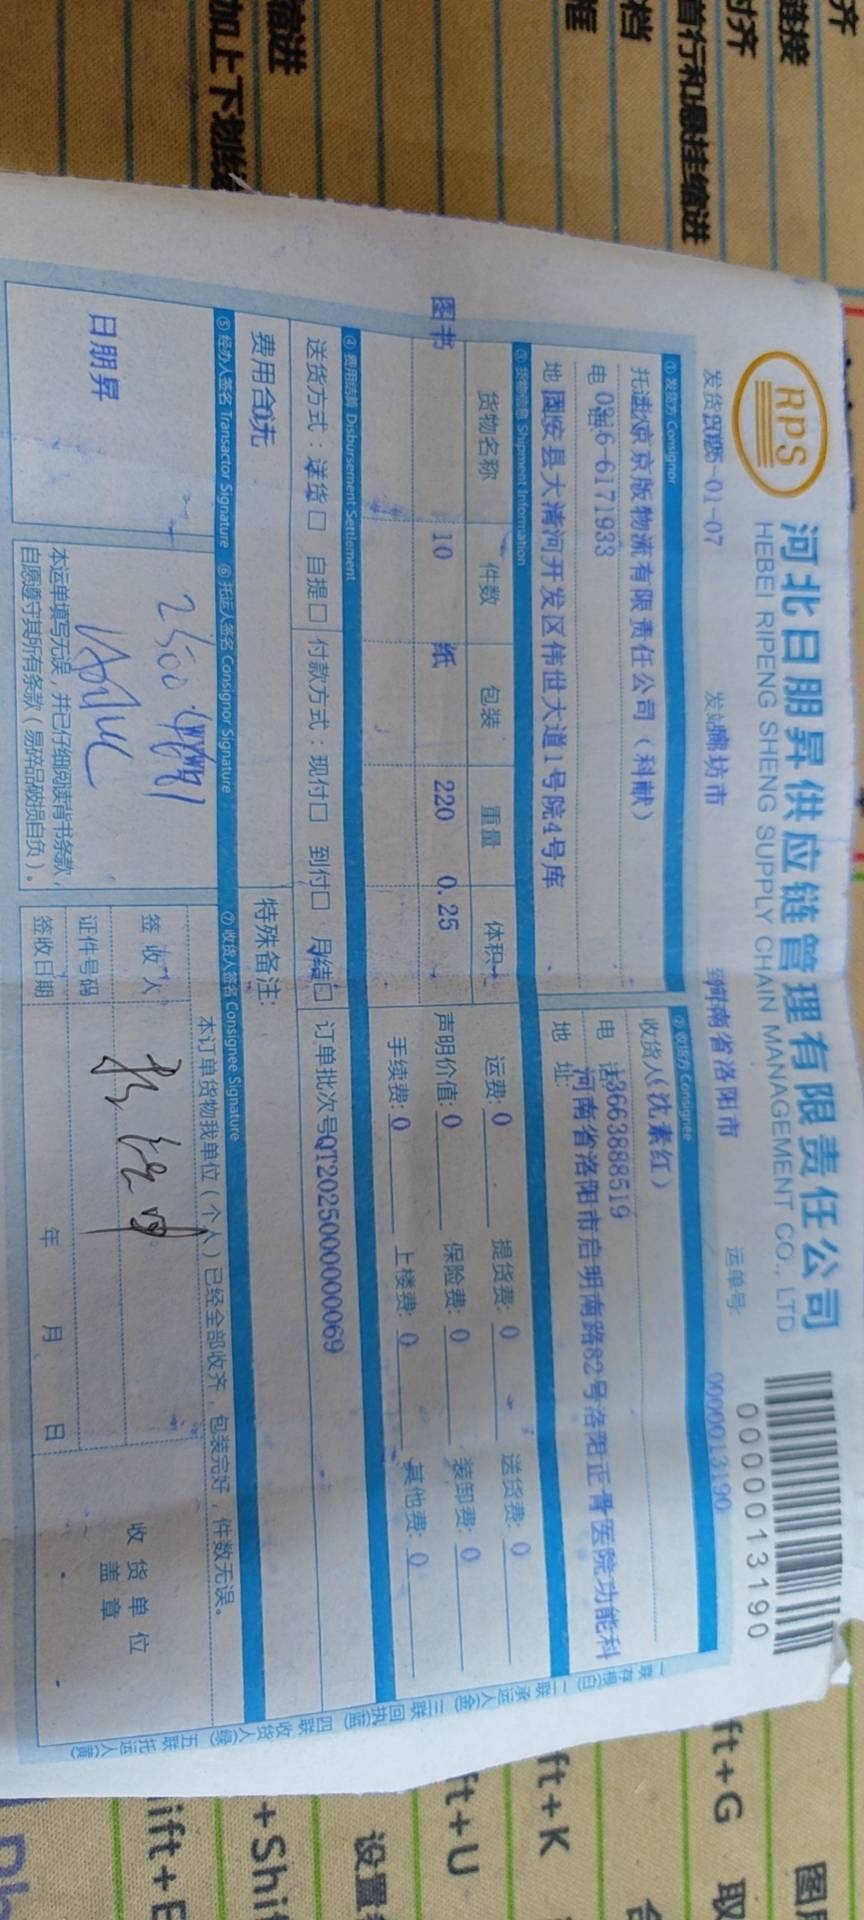 RPS
河北日朋昇供应链管理有限责任公司
HEBEI RIPENG SHENG SUPPLY CHAIN MANAGEMENT CO., LTD
0000013190
运单号: 0000013190
发货 -01-07
发站 廊坊市
河南省洛阳市
① 发货方 Consignor
京版物流有限责任公司(科献)
电 0316-6171933
地 固安县大清河开发区伟世大道1号院4号库
② 收货方 Consignee
收货人(沈素红)
电 话 13663888519
地 址: 河南省洛阳市启明南路82号洛阳正骨医院功能科
③ 货物信息 Shipment Information
货物名称 件数 包装 重量 体积
图书 10 纸 220 0.25
运费: 0 提货费: 0 送货费: 0
声明价值: 0 保险费: 0 装卸费: 0
手续费: 0 上楼费: 0 其他费: 0
④ 费用结算 Disbursement Settlement
送货方式:送货□ 自提□ 付款方式:现付□ 到付□ 月结□ 订单批次号QT2025000000069
费用合 0元
特殊备注:
⑤ 经办人签名 Transactor Signature ⑥ 托运人签名 Consignor Signature ⑦ 收货人签名 Consignee Signature
日朋昇
2500
本运单填写无误,并已仔细阅读背书条款,
自愿遵守其所有条款(易碎品破损自负)。
本订单货物我单位(个人)已经全部收齐,包装完好,件数无误。
签 收 人
证件号码
签收日期 年 月 日
收货单位
盖 章
一联存根(白) 二联承运人(金) 三联回执(蓝) 四联收货人(绿) 五联托运人(黄)
齐
链接
对齐
首行和悬挂缩进
档
框
缩进
加上下划线
图
ft+G 取
ft+K
ft+U
设置
+Shif